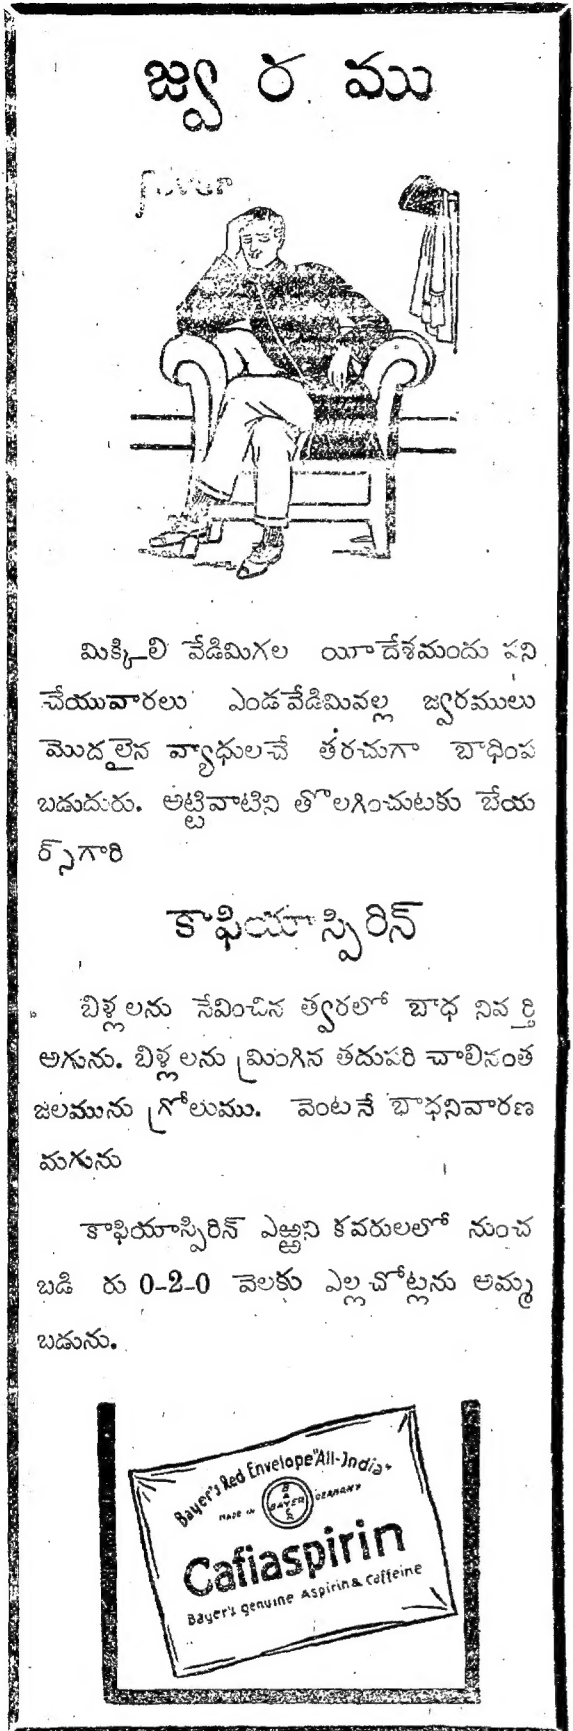 జ్వరము
fever
మిక్కిలి వేడిమిగల యీదేశమందు పని
చేయువారలు ఎండవేడిమివల్ల జ్వరములు
మొదలైన వ్యాధులచే తరచుగా బాధింప
బడుదురు. అట్టివాటిని తొలగించుటకు బేయ
ర్స్‌గారి
కాఫియాస్పిరిన్
బిళ్లలను సేవించిన త్వరలో బాధ నివర్తి
అగును. బిళ్లలను మ్రింగిన తదుపరి చాలినంత
జలమును గ్రోలుము. వెంటనే బాధనివారణ
మగును
కాఫియాస్పిరిన్ ఎఱ్ఱని కవరులలో నుంచ
బడి రు 0-2-0 వెలకు ఎల్లచోట్లను అమ్మ
బడును.
Bayer's Red Envelope "All-India"
MADE IN BAYER GERMANY
Cafiaspirin
Bayer's genuine Aspirin & Caffeine